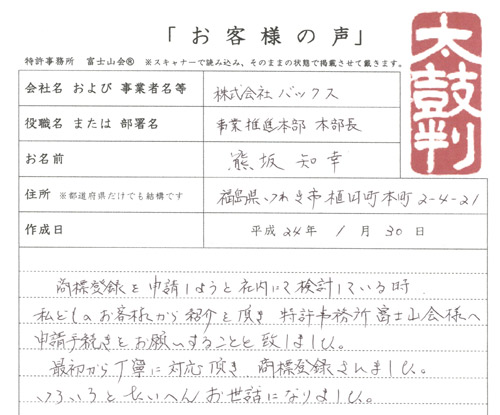 「お客様の声」
特許事務所 富士山会® ※スキャナーで読み込み、そのままの状態で掲載させて戴きます。
太鼓判
会社名 および 事業者名等 株式会社バックス
役職名 または 部署名 事業推進本部 本部長
お名前 熊坂 知幸
住所 ※都道府県だけでも結構です 福島県いわき市植田町本町2-4-21
作成日 平成 24年 1月 30日
商標登録を申請しようと社内にて検討している時、
私どものお客様から紹介を頂き 特許事務所富士山会様へ
申請手続きをお願いすることと致しました。
最初から丁寧に対応頂き、商標登録されました。
いろいろとたいへんお世話になりました。